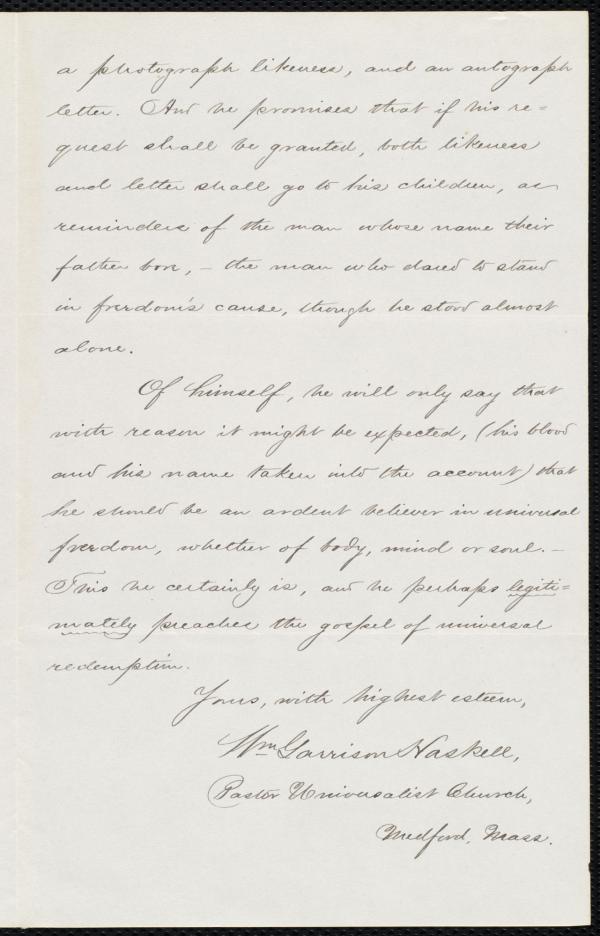 a photograph likeness, and an autograph
letter. And he promises that if his re=
quest shall be granted, both likeness
and letter shall go to his children, as
reminders of the man whose name their
father bore, – the man who dared to stand
in freedom's cause, though he stood almost
alone.
Of himself, he will only say that
with reason it might be expected, (his blood
and his name taken into the account) that
he should be an ardent believer in universal
freedom, whether of body, mind or soul. –
This he certainly is, and he perhaps legiti=
mately preaches the gospel of universal
redemption.
Yours, with highest esteem,
Wm Garrison Haskell,
Pastor Universalist Church,
Medford, Mass.